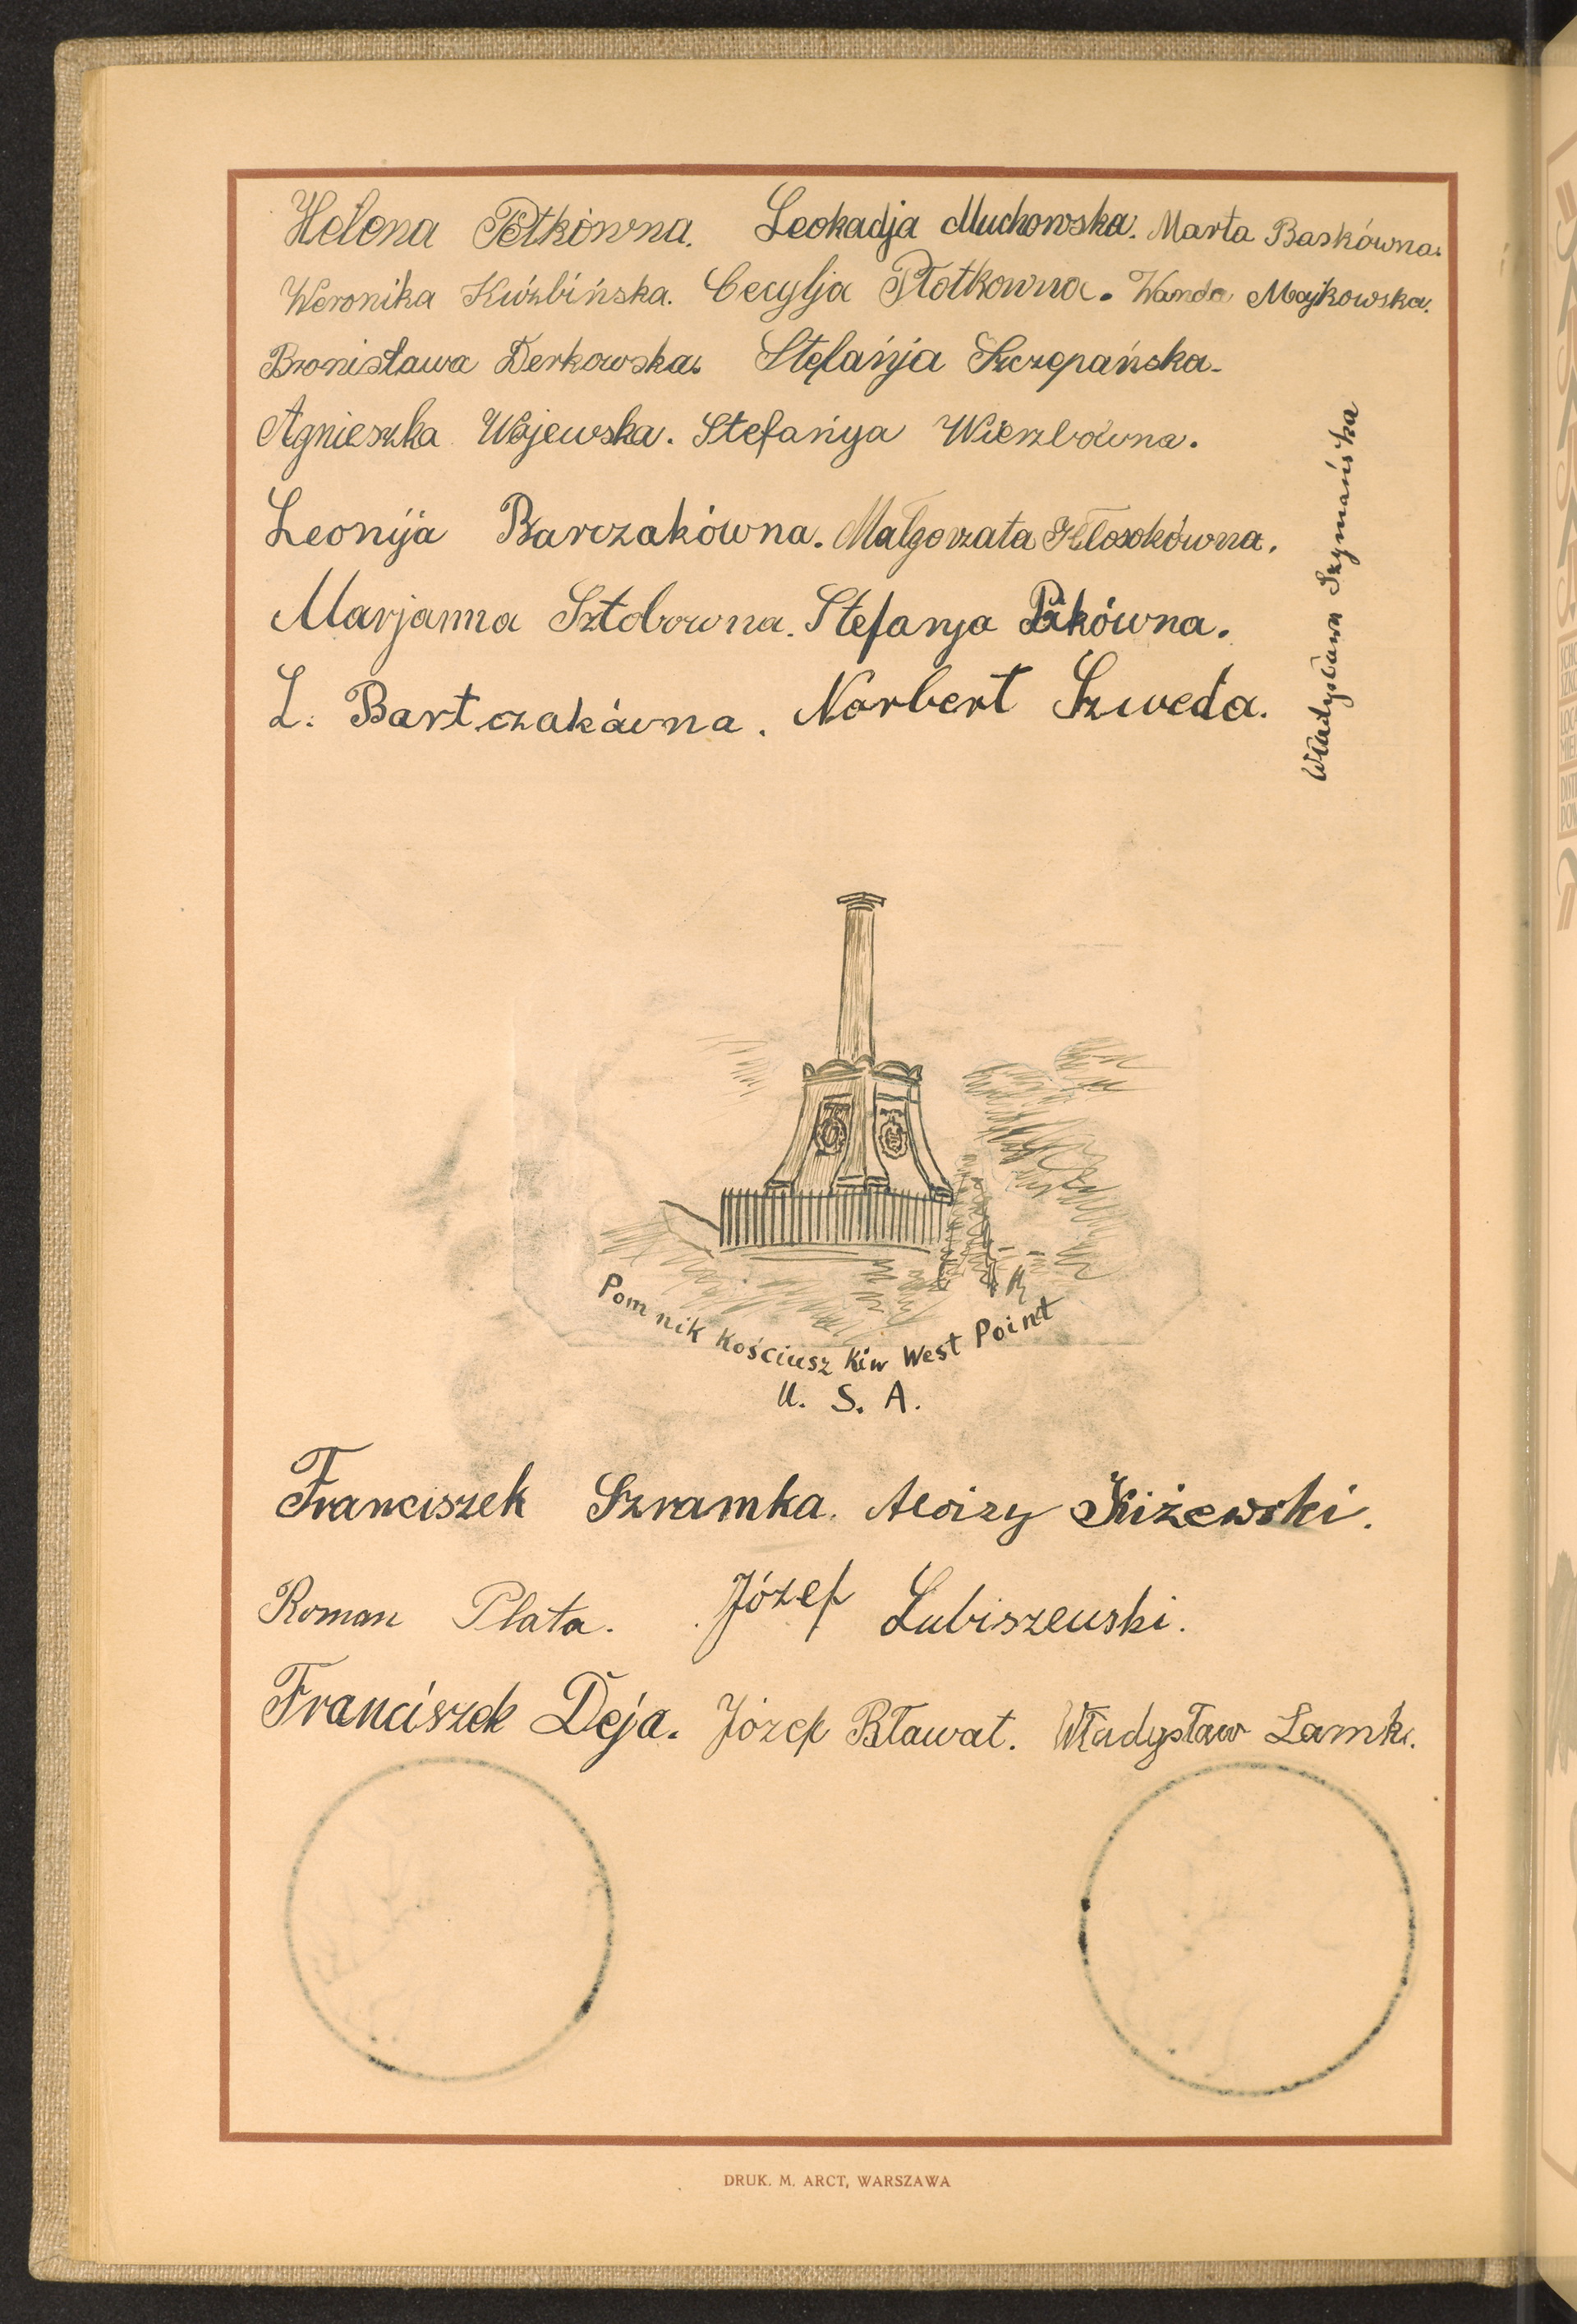 Helena Petkówna. Leokadja Muchowska. Marta Baskówna.
Weronika Kuźbińska. Cecylja Płotkowna. Wanda Majkowska.
Bronisława Derkowska. Stefańja Szczepańska.
Agnieszka Wojewska. Stefańya Wieszbówna.
Leonija Barczakówna. Małgorzata Kłosokówna.
Marjanna Sztobowna. Stefanja Pakówna.
L. Bartczakówna. Norbert Szweda.
Władysława Szymańska
Pomnik Kościuszkiw West Point
U. S. A.
Franciszek Szramka. Aloizy Kiżewski.
Roman Plata. Józef Lubiszeuski.
Franciszek Deja. Józef Bławat. Władysław Lamk.
DRUK. M. ARCT, WARSZAWA